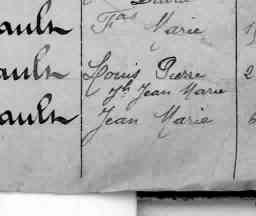 ault Fois Marie 1
ault Louis Pierre 2
Jean Marie
ault Jean Marie 6